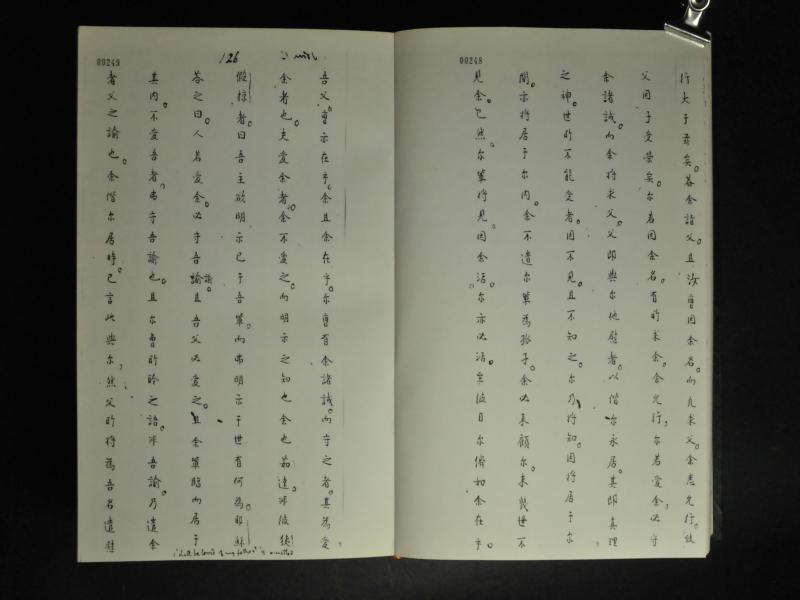 00248
行大于玆矣。蓋余詣父。且汝曹因余名。而凢求父。余悉允行。致
父因子受榮矣。尔若因余名。有所求余。余允行。尔若愛余。必守
余諸誡。而余將求父。父即與尔他慰者。以偕尔永居。其即真理
之神。世所不能受者。因不見。且不知之。尔乃將知。因將居于尔
間。亦將居于尔內。余不遣尔軰為孤子。余必來顧尔。未幾世不
見余。已然尔軰將見。因余活。尔亦必活。矣彼日尔儕知余在乎
00249
126
吾父。曹示在乎余。且余在乎尔曹。有余諸誡。而守之者。其為愛
余者也。夫愛余者。余不愛之。而明示之知也余也。茹達非彼狹
假掠者。曰吾主欲明示已于吾軰。而弗明示于世有何為。耶穌
荅之曰。人若愛余。必守吾諭。且吾父必愛之。且余軰臨而居于
其內。不愛吾者。弗守吾諭也。且尔曹所聆之語。非吾諭。乃遣余
者父之諭也。余偕尔居時。已言此與尔。然父所將為吾名遣慰
shall be loved of my father is omitted